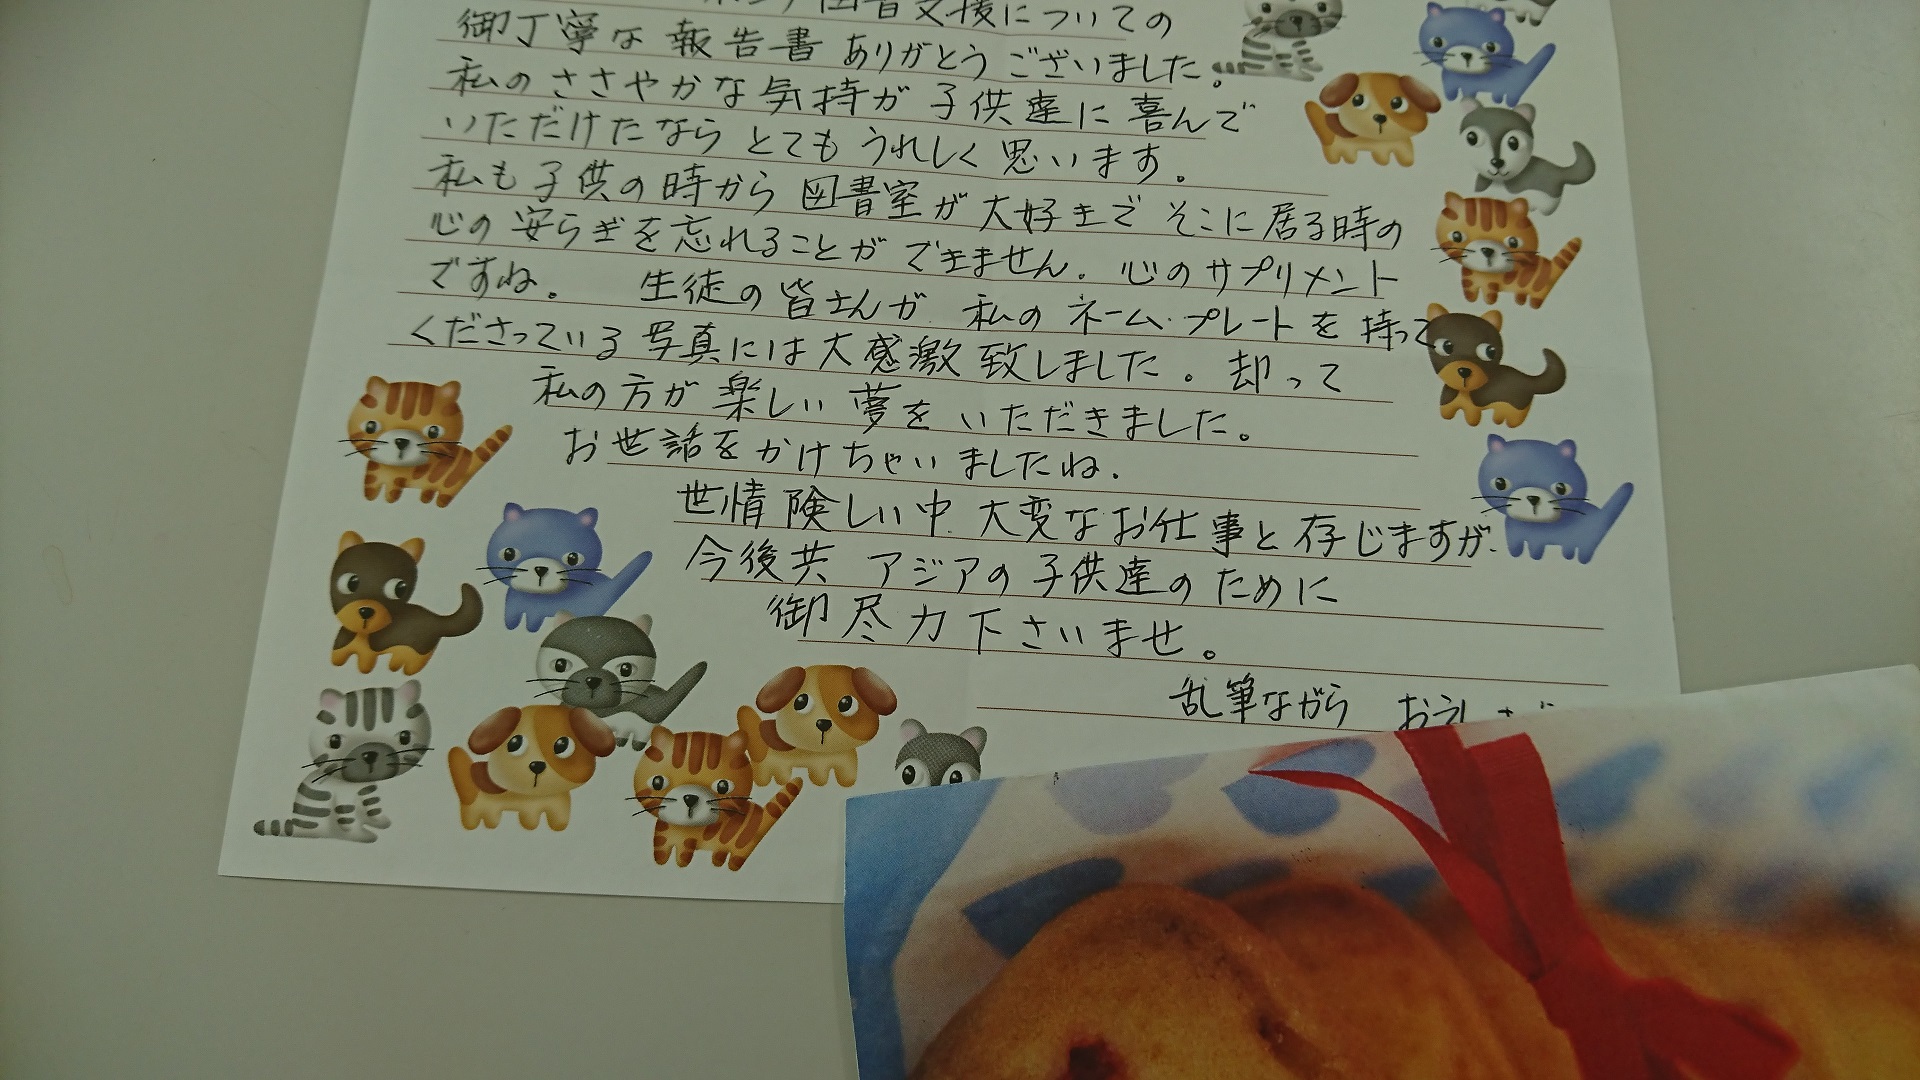 図書支援についての
御丁寧な報告書ありがとうございました。
私のささやかな気持が子供達に喜んで
いただけたならとてもうれしく思います。
私も子供の時から図書室が大好きでそこに居る時の
心の安らぎを忘れることができません。心のサプリメント
ですね。 生徒の皆さんが 私のネーム・プレートを持って
くださっている写真には大感激致しました。却って
私の方が楽しい夢をいただきました。
お世話をかけちゃいましたね。
世情険しい中、大変なお仕事と存じますが、
今後共 アジアの子供達のために
御尽力下さいませ。
乱筆ながら